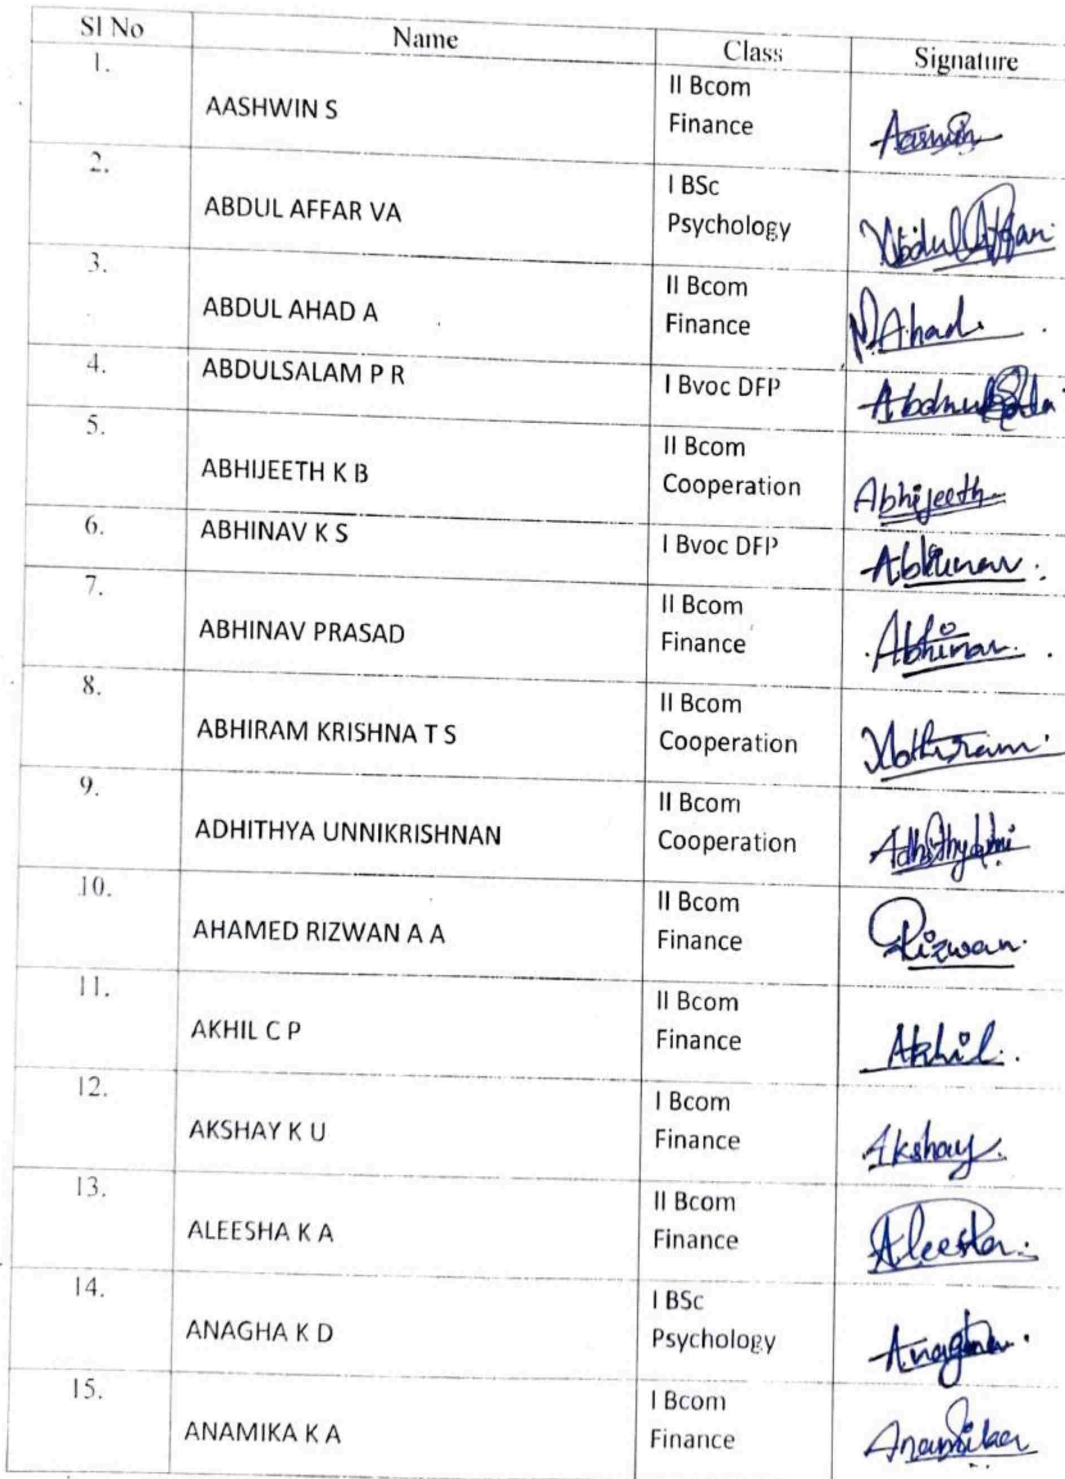 Sl No Name Class Signature
1. AASHWIN S II Bcom
Finance Aaswin
2. ABDUL AFFAR VA I BSc
Psychology Abdul Affar
3. ABDUL AHAD A II Bcom
Finance Ahad
4. ABDULSALAM P R I Bvoc DFP
5. ABHIJEETH K B II Bcom
Cooperation Abhijeeth
6. ABHINAV K S I Bvoc DFP Abhinav
7. ABHINAV PRASAD II Bcom
Finance Abhinav
8. ABHIRAM KRISHNA T S II Bcom
Cooperation Abhiram
9. ADHITHYA UNNIKRISHNAN II Bcom
Cooperation
10. AHAMED RIZWAN A A II Bcom
Finance Rizwan
11. AKHIL C P II Bcom
Finance Akhil
12. AKSHAY K U I Bcom
Finance Akshay
13. ALEESHA K A II Bcom
Finance Aleesha
14. ANAGHA K D I BSc
Psychology Anagha
15. ANAMIKA K A I Bcom
Finance Anamika